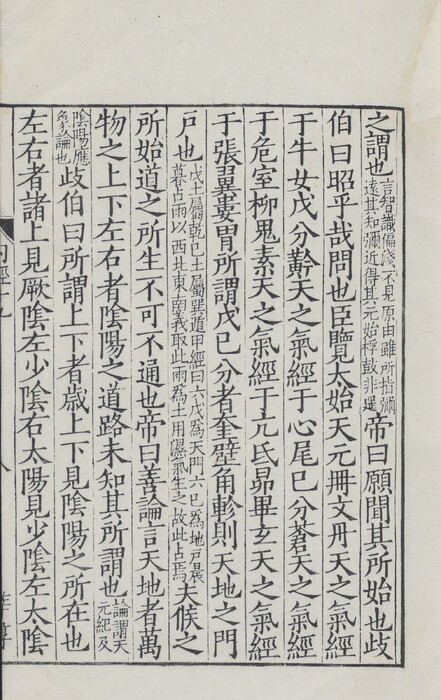 之謂也言智識偏淺不見原由雖所指彌遠其知彌近得其元始桴鼓非遥帝曰願聞其所始也歧
伯曰昭乎哉問也臣覽太始天元冊文丹天之氣經
于牛女戊分黅天之氣經于心尾己分蒼天之氣經
于危室柳鬼素天之氣經于亢氐昴畢玄天之氣經
于張翼婁胃所謂戊己分者奎壁角軫則天地之門
戶也戊土屬乾己土屬巽遁甲經曰六戊為天門六己為地戶晨暮占雨以西北東南義取此雨為土用濕氣生之故此占焉夫候之
所始道之所生不可不通也帝曰善論言天地者萬
物之上下左右者陰陽之道路未知其所謂也論謂天元紀及
陰陽應象論也歧伯曰所謂上下者歲上下見陰陽之所在也
左右者諸上見厥陰左少陰右太陽見少陰左太陰